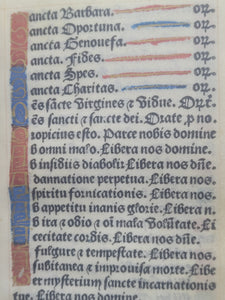 ancta Barbara. oꝛ.
ancta Oportuna. oꝛ.
ancta Genouefa. oꝛ.
ancta Fides. oꝛ.
ancta Spes. oꝛ.
ancta Charitas. oꝛ.
ēs sancte Virgines ⁊ Vidue. Oꝛ.
ēs sancti ⁊ sancte dei. Orate p̄ no
ropicius esto. Parce nobis domine
b omni malo. Libera nos domine.
b insidiis diaboli. Libera nos dñe.
dannatione perpetua. Libera nos.
spiritu fornicationis. Libera nos.
b appetitu inanis glorie. Libera n.
b ira ⁊ odio ⁊ oī mala Volūtate. Li
cecitate cordis. Libera nos domine.
fulgure ⁊ tempestate. Libera nos.
subitanea ⁊ improuisa morte. Libe
er mysterium sancte incarnationis
tue. Libera nos domine.